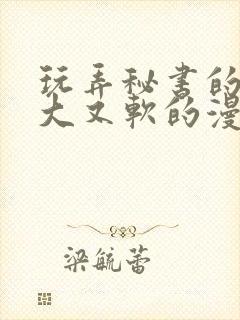 玩弄秘书的
大又软的漫
梁毓蕾